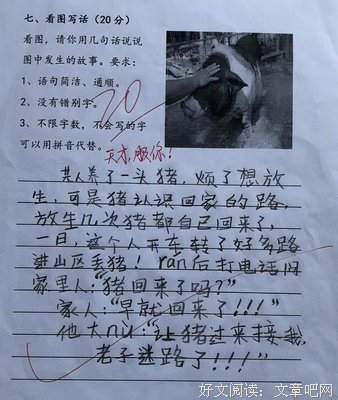 七、看图写话(20分)
看图，请你用几句话说说
图中发生的故事。要求：
1、语句简洁、通顺。
2、没有错别字。
3、不限字数，不会写的字
可以用拼音代替。
20
天才，服你！
某人养了一头猪，烦了想放
生，可是猪认识回家的路，
放生几次猪都自己回来了，
一日，这个人开车转了好多路
进山区丢猪！rán后打电话问
家里人："猪回来了吗？"
家人："早就回来了!!!"
他大nù："让猪过来接我，
老子迷路了!!!"
好文阅读：文章吧网